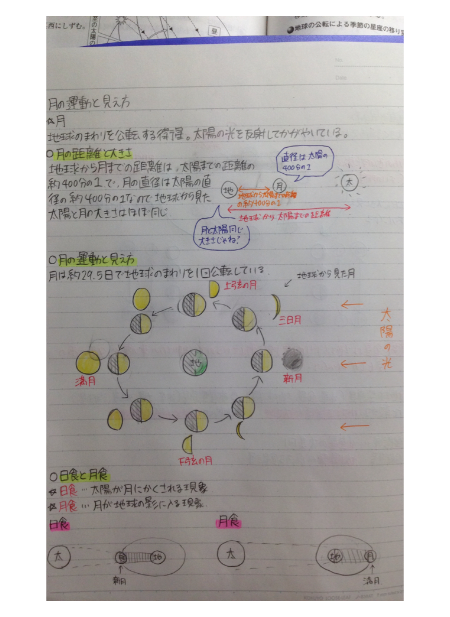 西にしずむ。
●地球の公転による季節の星座の移り変
月の運動と見え方
月
地球のまわりを公転する衛星。太陽の光を反射してかがやいている。
○月の距離と大きさ
地球から月までの距離は、太陽までの距離の
約400分の1で、月の直径は太陽の直
径の約400分の1なので地球から見た
太陽と月の大きさはほぼ同じ
直径は太陽の
400分の1
地
月
太
の約400分の1
地球から太陽までの距離
月と太陽同じ
大きさじゃね?
○月の運動と見え方
月は約29.5日で地球のまわりを1回公転している
上弦の月
地球から見た月
三日月
太陽の光
満月
地
新月
下弦の月
○日食と月食
☆日食…太陽が月にかくされる現象
☆月食…月が地球の影に入る現象
日食
月食
太
地
新月
太
地
月
満月